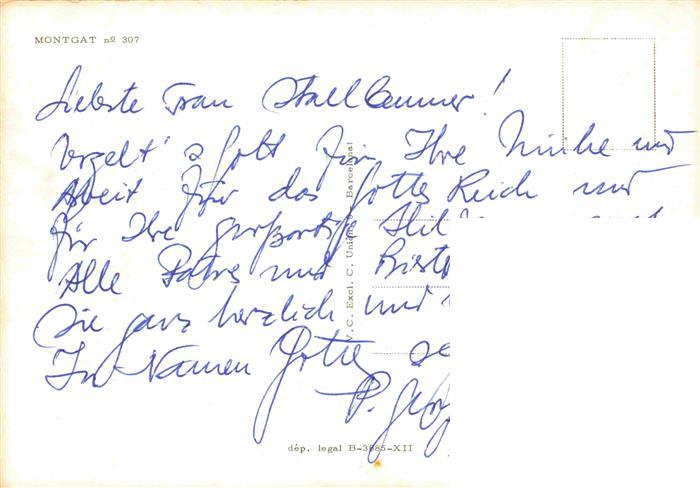 MONTGAT nº 307
Liebste Frau Stallbaumer!
Vergelt's Gott für Ihre Mühe und
Arbeit für das Gottes Reich und
für Ihre großartige
Alle Patres und
Sie ganz herzlich und
Im Namen Gottes
P.
V. C. Excl. C. Unidas - Barcelona
dép. legal B-3685-XII